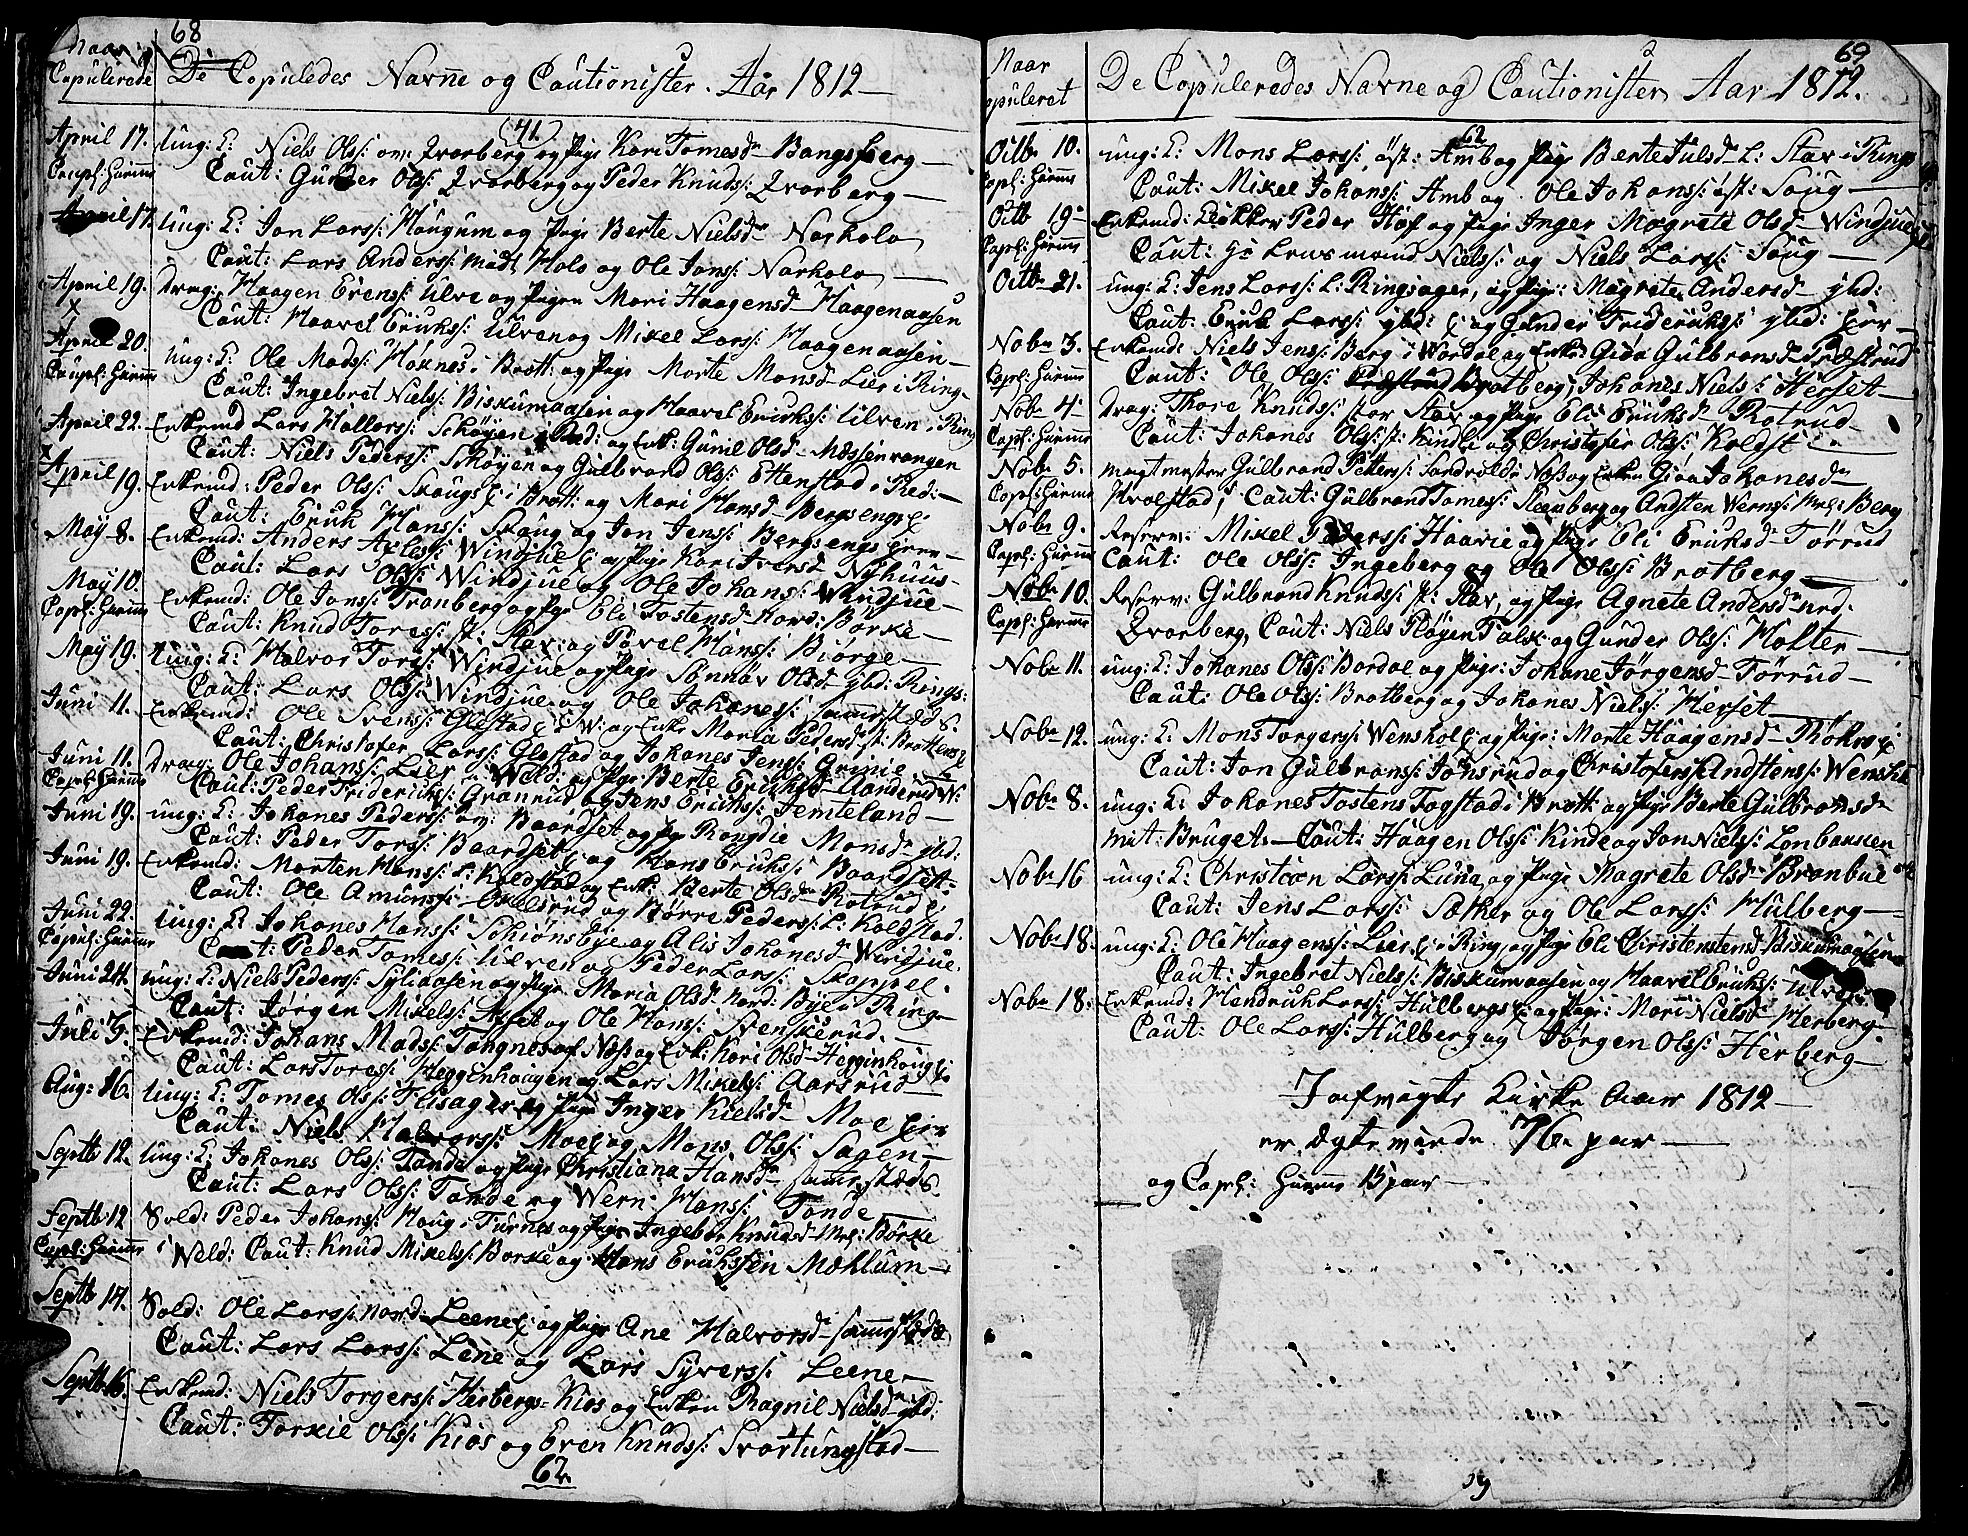 68
Naar Copulerede
De Copuledes Navne og Cautionister. Aar 1812
(41)
April 17. Ung: K: Niels Ols: om: Qvarberg og Pige Kari Tomesd Bangsberg
Caut: Gunder Ols: Qvarberg og Peder Knuds: Qvarberg
April 17. Ung: K: Jon Lars: Hougum og Pige Berte Nielsd Narholo
Caut: Lars Anders: midt Holo og Ole Jans: Narholo
April 19. Drag: Haagen Erens: Ulve og Pigen Mari Haagensd Haagenaasen
Caut: Haavel Eriks: Ulven og Mikel Lars: Haagenaasen
April 20. Ung: K: Ole Mads: Moxnes i Brøtt: og Pige Marte Monsd Lier i Ring
Caut: Ingebret Niels: Biskumaasen og Haavel Eriks: Ulven i Ring
April 22. Enkemd Lars Hallors: Schøyen i Red: og Enk: Gunil Olsd Messenvangen
Caut: Niels Peders: Schøyen og Gulbrand Ols: Ettestad i Red:
April 19. Enkemd: Peder Ols: Skougs i Brøtt: og Mari Hansd Bergseng
Caut: Erik Hans: Skoug og Jon Jens: Bergseng
May 8. Enkemd: Anders Axles: Windjue og Pige Kari Iversd Nyhuus
Caut: Lars Ols: Windjue og Ole Johans: Windjue
May 10. Enkemd: Ole Jons: Tranberg og Pige Eli Tostensd Nord: Børke
Caut: Knud Tores: st: Stav: og Povel Hans: Biørge
May 19. Ung: K: Halvor Tors: Windjue og Pige Sønnøv Olsd ybd: Rings:
Caut: Lars Ols: Windjue og Ole Johanes: samestæds
Juni 11. Enkemd: Ole Svens: Glæstad i W: og Enke Maria Pedersd st: Brøttens
Caut: Christofer Lars: Glæstad og Johanes Jens: Grinie
Juni 11. Drag: Ole Johans: Lier i Weld: og Pige Berte Eriksd Aanderud W:
Caut: Peder Frideriks: Granrud og Jens Eriks: Jemteland
Juni 19. Ung: K: Johanes Peders: om: Baardset og Pige Rangdie Monsd ybd:
Caut: Peder Tors: Baardset og Hans Eriks: Baardset
Juni 19. Enkemd: Morten Hans: L: Koldstad og Enk: Berte Olsd Rotrud
Caut: Ole Amuns: og Børre Peders: L: Kolstad
Juni 22. Ung: K: Johanes Hans: Schiønsbye og Alis Johanesd Windjue.
Caut: Peder Tomes: Ulven og Peder Lars: Skappel
Juni 24. Ung: K: Niels Peders: Syliaasen og Pige Maria Olsd Nord: Bye i Ring
Caut: Jørgen Mikels: Asset og Ole Hans: Svenskerud
Juli 3. Enkemd: Johans Mads: Tangnes af Næs og Enk: Kari Olsd Hegginhoug
Caut: Lars Tores: Heggenhougen og Lars Mikels: Aarsrud
Aug: 16. Ung: K: Tomes Ols: Flisager og Pige Inger Kielsd Moe
Caut: Niels Halvors: Moe og Mons Ols: Sagen
Septb 12. Ung: K: Johanes Ols: Tande og Pige Christiana Hansd samestæds.
Caut: Lars Ols: Tande og Wern: Hans: Tande
Septb: 12 Sold: Peder Johans: Houg i Furnes og Pige Ingebor Knudsd Mel: Børke
i Weld: Caut: Knud Mikels: Borke og Hans Erikssen Mæhlum
Septb 14. Sold: Ole Lars: Nord: Leene og Pige Ane Halvorsd samestæds
Caut: Lars Lars: Lene og Lars Syvers: Leene
Septb. 16. Enkemd: Niels Torgers: Herbergs=Kios og Enken Ragnil Nielsd ybd:
Caut: Torkil Ols: Kios og Even Knuds: Svartungstad
62
69
Naar Copuleret
De Copuleredes Navne og Cautionister Aar 1812.
62
Octb. 10. Ung: K: Mons Lars: øst: Amb og Pige Berte Julsd L: Stav i Rings
Caut: Mikel Johans: Amb og Ole Johans: øst: Soug
Octb 19. Enkemd: Klokker Peder Høf og Pige Inger Magrete Olsd Windjue
Caut: Hr Lensmand Niels: og Niels Lars: Soug
Octb. 21. Ung: K: Jens Lars: L: Ringsager, og Pige: Magrete Andersd ybd:
Caut: Erik Lars: ybd: og Gunder Frideriks: ybd:
Nobr 3. Enkemd: Niels Jens: Berg i Wardal og Enke Gida Gulbransd Præstrud
Caut: Ole Ols: Brotberg, Johanes Niels: Herset
Nobr 4. Drag: Thore Knuds: stor Stav og Pige Eli Eriksd Rotrud
Caut: Johanes Ols: st: Kindli og Christofer Ols: Koldst:
Nobr 5. Vagtmester Gulbrand Petters: Sandvold i Næs og Enken Gioa Johanesd
Hvolstad, Caut: Gulbrand Tomes: Steenberg og Andsten Werns: Mel: Berg
Nobr 9. Reserv: Mikel Peders: Haavie og Pige Eli Eriksd Tørrud
Caut: Ole Ols: Ingeberg og Ole Ols: Brotberg
Nobr 10. Reserv: Gulbrand Knuds: st: Stav, og Pige Agnete Andersd ned:
Qvarberg, Caut: Niels Pløyen Falsk: og Gunder Ols: Holter
Nobr 11. Ung: K: Johanes Ols: Bardal og Pige: Johane Jørgensd Tørrud
Caut: Ole Ols: Brotberg og Johanes Niels: Herset
Nobr 12. Ung: K: Mons Torgers: Wenshol og Pige: Marte Haagensd Røhns
Caut: Jon Gulbrans: Johnsrud og Christofers: Andstens: Wenshol
Nobr 8. Ung: K: Johanes Tostens Fogstad i Brøtt: og Pige Berte Gulbransd
mit: Bruget. Caut: Haagen Ols: Kinde og Jon Niels: Lonbakken
Nobr 16 Ung: K: Christian Lars: Luna og Pige Magrete Olsd Branbue
Caut: Jens Lars: Sæther og Ole Lars: Hulberg
Nobr 18. Ung: K: Ole Haagens: Lier i Ring, og Pige Eli Christenstensd Biskumaasen
Caut: Ingebret Niels: Biskumaasen og Haavel Eriks: Ulven
Nobr 18. Enkemd: Hendrik Lars: Hulbergs og Pige: Mari Nielsd Herberg
Caut: Ole Lars: Hulberg og Jørgen Ols: Herberg
I afvigte Kirke Aar 1812
er ægteviede 76 par
og Copl: 13 par